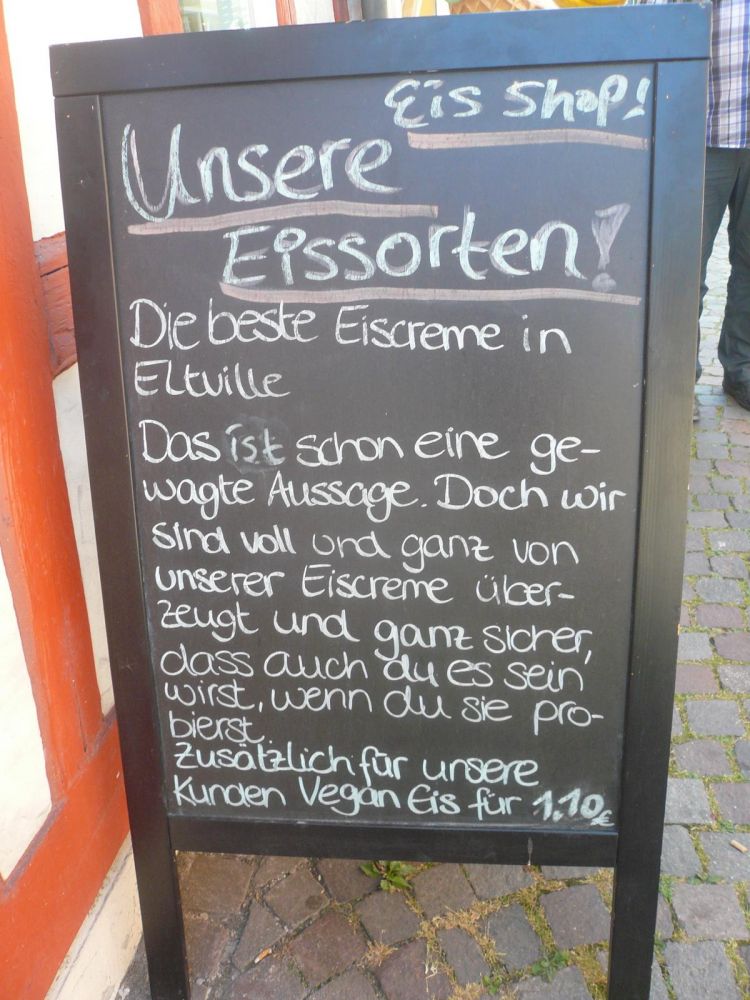 Eis Shop!
Unsere
Eissorten!
Die beste Eiscreme in
Eltville
Das ist schon eine ge-
wagte Aussage. Doch wir
sind voll und ganz von
unserer Eiscreme über-
zeugt und ganz sicher,
dass auch du es sein
wirst, wenn du sie pro-
bierst.
Zusätzlich für unsere
Kunden Vegan Eis für 1,10€